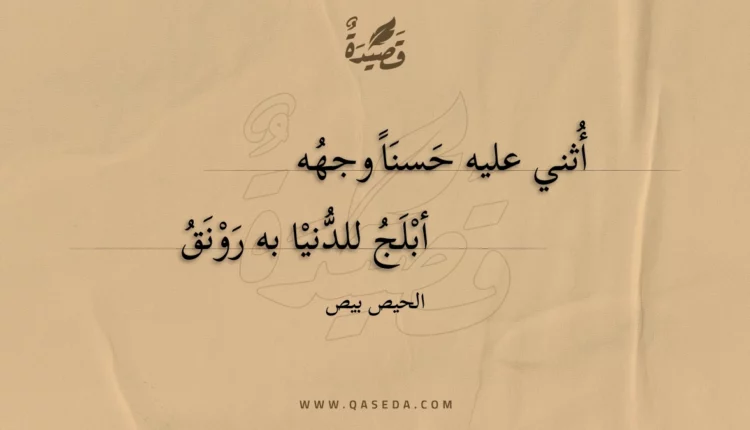 قَصِيْدَةٌ
أُثني عليه حَسنَاً وجهُه
أبْلَجُ للدُّنيْا به رَوْنَقُ
الحيص بيص
WWW.QASEDA.COM